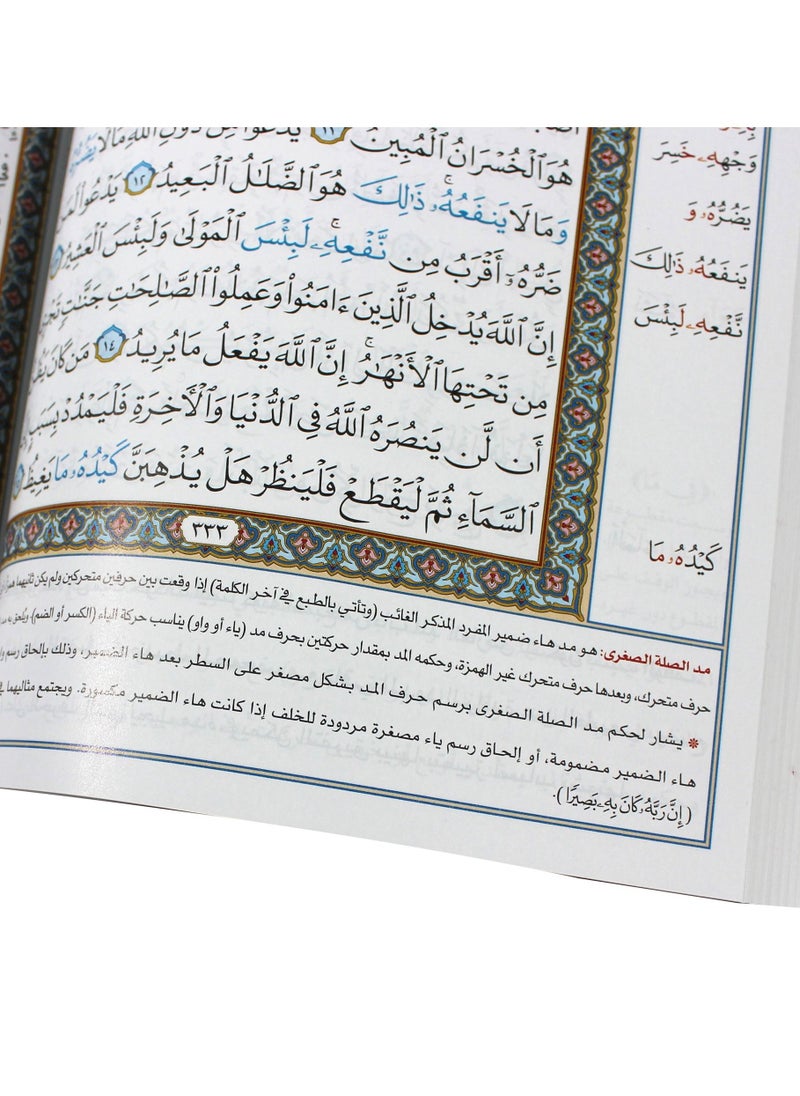 هُوَ ٱلْخُسْرَانُ ٱلْمُبِينُ ١١ يَدْعُوا۟ مِن دُونِ ٱللَّهِ مَا لَا يَضُرُّهُۥ
وَمَا لَا يَنفَعُهُۥ ۚ ذَٰلِكَ هُوَ ٱلضَّلَٰلُ ٱلْبَعِيدُ ١٢ يَدْعُوا۟ لَمَن
ضَرُّهُۥٓ أَقْرَبُ مِن نَّفْعِهِۦ ۚ لَبِئْسَ ٱلْمَوْلَىٰ وَلَبِئْسَ ٱلْعَشِيرُ
إِنَّ ٱللَّهَ يُدْخِلُ ٱلَّذِينَ ءَامَنُوا۟ وَعَمِلُوا۟ ٱلصَّٰلِحَٰتِ جَنَّٰتٍ
مِن تَحْتِهَا ٱلْأَنْهَٰرُ ۚ إِنَّ ٱللَّهَ يَفْعَلُ مَا يُرِيدُ ١٤ مَن كَانَ
أَن لَّن يَنصُرَهُ ٱللَّهُ فِى ٱلدُّنْيَا وَٱلْءَاخِرَةِ فَلْيَمْدُدْ بِسَبَبٍ
ٱلسَّمَآءِ ثُمَّ لْيَقْطَعْ فَلْيَنظُرْ هَلْ يُذْهِبَنَّ كَيْدُهُۥ مَا يَغِيظُ
٣٣٣
وَجْهِهِۦ خَسِرَ
يَضُرُّهُۥ وَ
يَنفَعُهُۥ ذَٰلِكَ
نَّفْعِهِۦ لَبِئْسَ
كَيْدُهُۥ مَا
مد الصلة الصغرى: هو مد هاء ضمير المفرد المذكر الغائب (وتأتي بالطبع في آخر الكلمة) إذا وقعت بين حرفين متحركين ولم يكن ثانيهما
حرف متحرك، وبعدها حرف متحرك غير الهمزة، وحكمه المد بمقدار حركتين بحرف مد (ياء أو واو) يناسب حركة الهاء (الكسر أو الضم). ويلحق به
* يشار لحكم مد الصلة الصغرى برسم حرف المد بشكل مصغر على السطر بعد هاء الضمير، وذلك بإلحاق رسم
هاء الضمير مضمومة، أو إلحاق رسم ياء مصغرة مردودة للخلف إذا كانت هاء الضمير مكسورة. ويجتمع مثاليهما
( إِنَّ رَبَّهُۥ كَانَ بِهِۦ بَصِيرًا ).